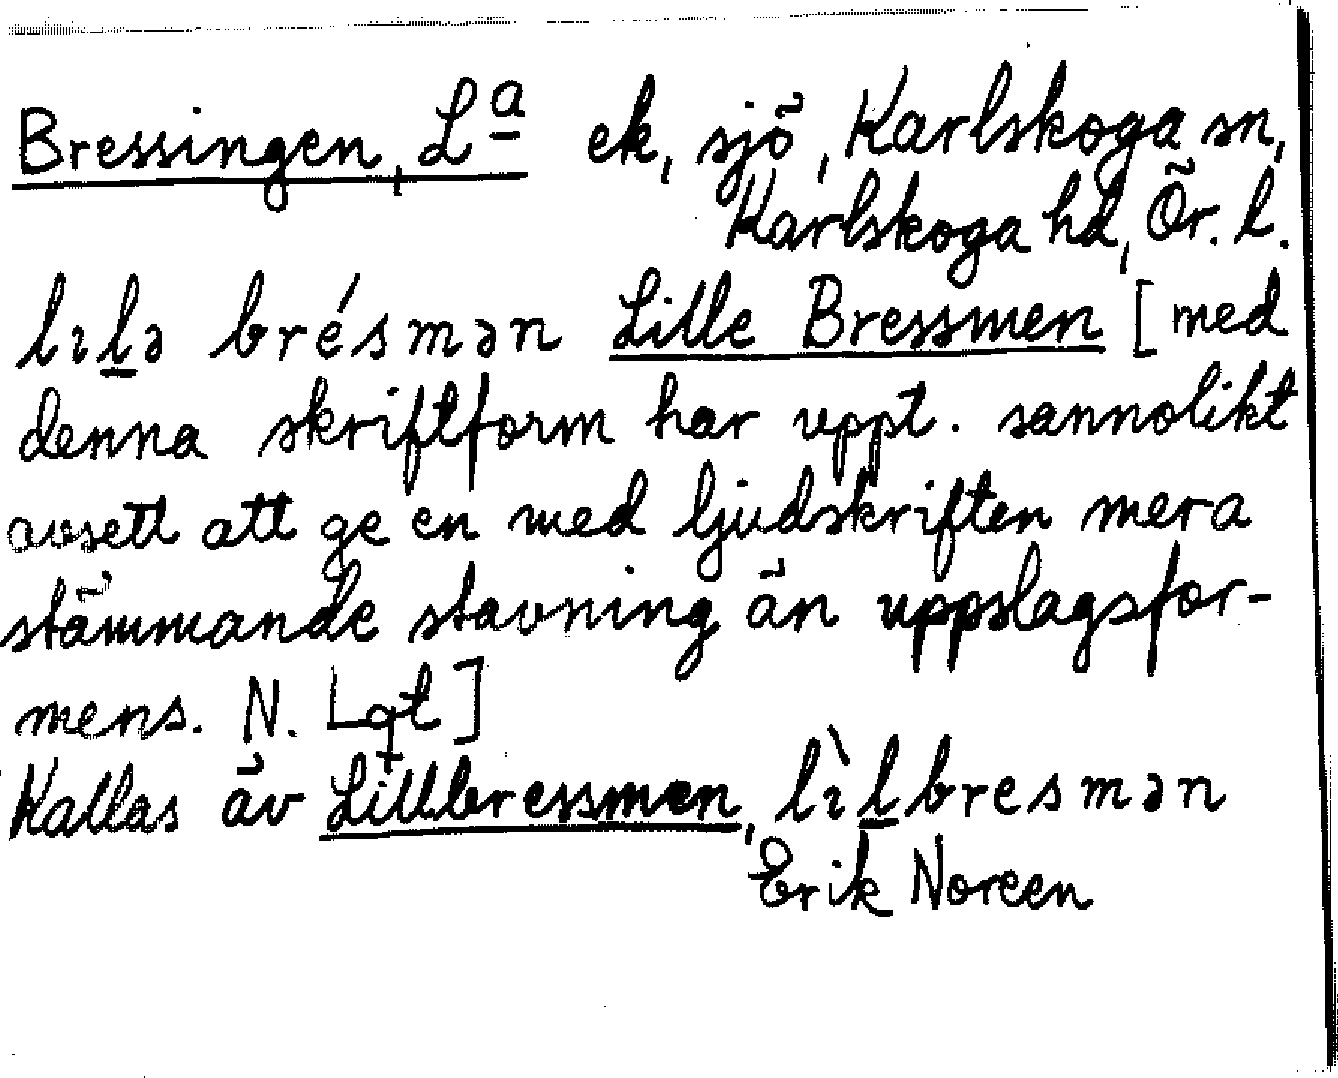 Bressingen, Lª ek, sjö, Karlskoga sn,
Karlskoga hd, Ör. l.
lılə brésmən Lille Bressmen [med
denna skriftform har uppt. sannolikt
avsett att ge en med ljudskriften mera
stämmande stavning än uppslagsfor-
mens. N. Lqt]
Kallas äv Lillbressmen, lı̀lbresmən
Erik Noreen